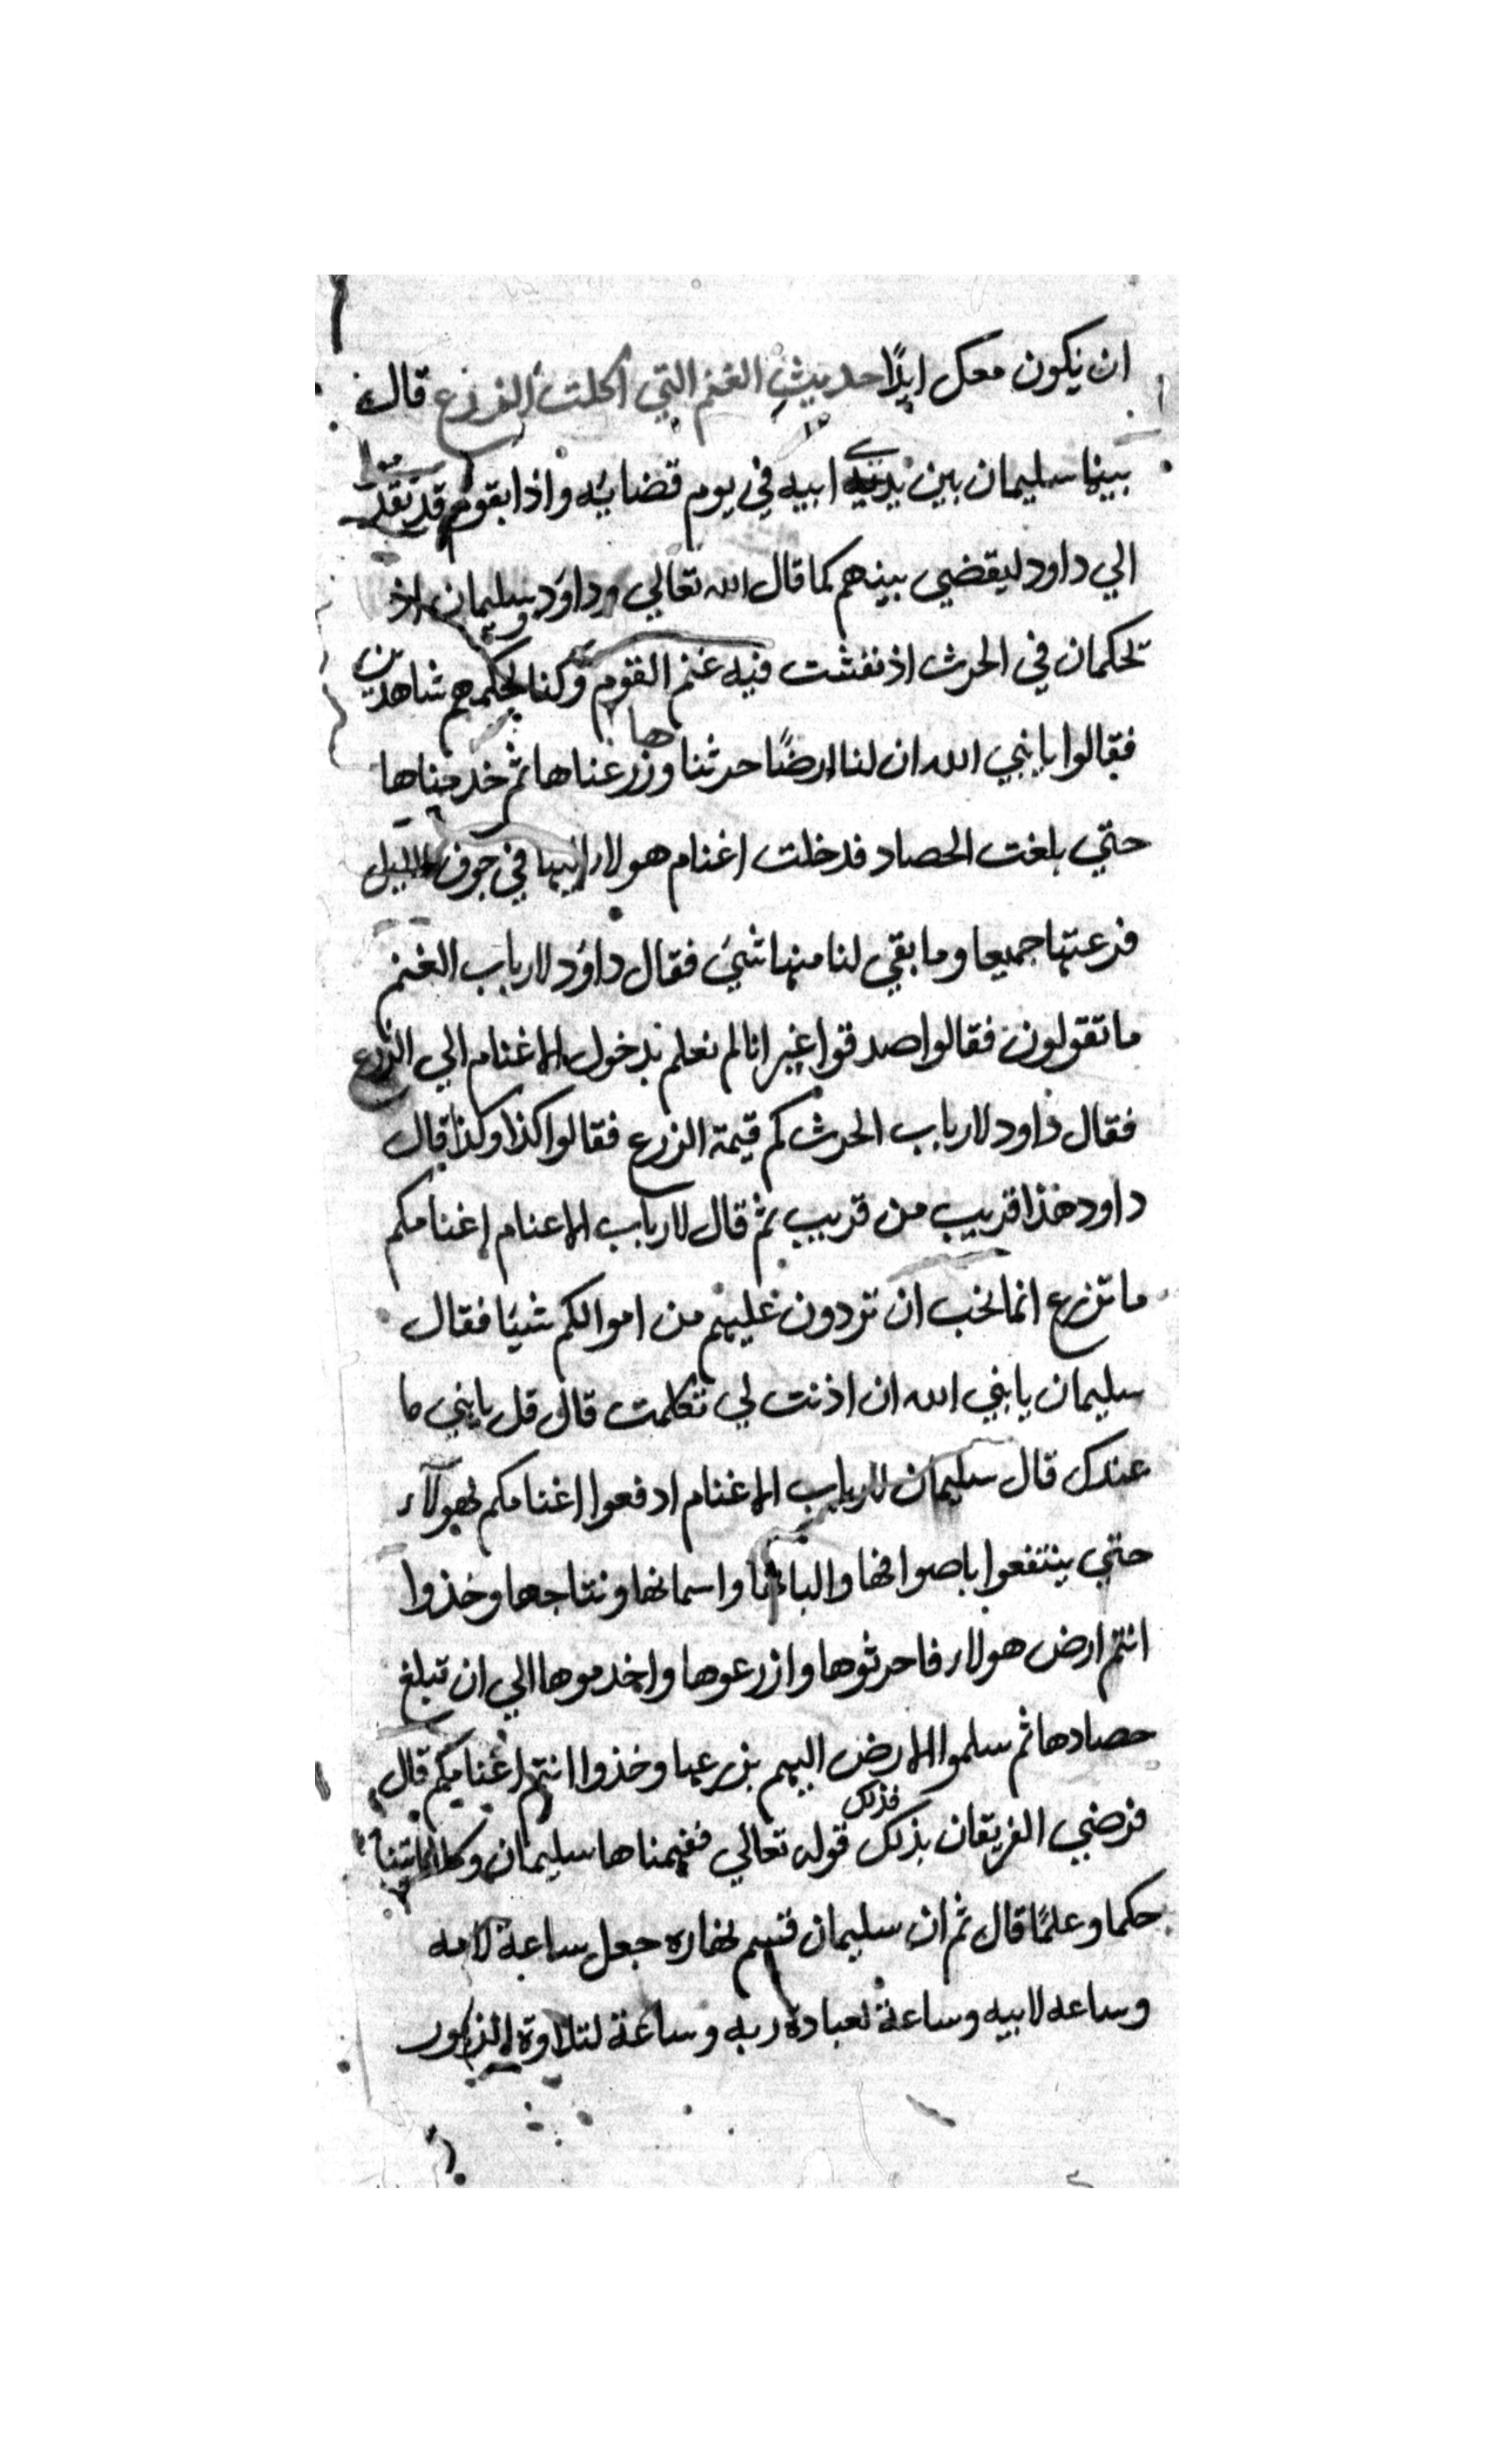 ان نكون معك ابدًا حديث الغنم التي اكلت الزرع قال
بينما سليمان بين يدي ابيه في يوم قضايه واذا بقوم قد تقدموا
الي داود ليقضي بينهم كما قال الله تعالي وداود وسليمان اذ
تحكمان في الحرث اذ نفشت فيه غنم القوم وكنا لحكمهم شاهدين
فقالوا يا نبي الله ان لنا ارضًا حرثناها وزرعناها ثم خدمناها
حتي بلغت الحصاد فدخلت اغنام هولاء اليها في جوف الليل
فرعتها جميعا وما بقي لنا منها شيء فقال داود لارباب الغنم
ما تقولون فقالوا صدقوا غير انا لم نعلم بدخول الاغنام الي الزرع
فقال داود لارباب الحرث كم قيمة الزرع فقالوا كذا وكذا قال
داود هذا قريب من قريب ثم قال لارباب الاعنام اغنامكم
ما تزرع انما نحب ان تردون عليهم من اموالكم شيا فقال
سليمان يا نبي الله ان اذنت لي تكلمت قال قل يا بني ما
عندك قال سليمان لارباب الاغنام ادفعوا اغنامكم لهولآء
حتي ينتفعوا باصوافها والبانها واسمانها ونتاجها وخذوا
انتم ارض هولاء فاحرثوها وازرعوها واخدموها الي ان تبلغ
حصادها ثم سلموا الارض اليهم بزرعها وخذوا انتم اغنامكم قال
فرضي الفريقان بذلك فذلك قوله تعالي ففهمناها سليمان وكلا اتينا
حكما وعلمًا قال ثم ان سليمان قسم نهاره جعل ساعة لامه
وساعه لابيه وساعة لعبادة ربه وساعة لتلاوة الزبور